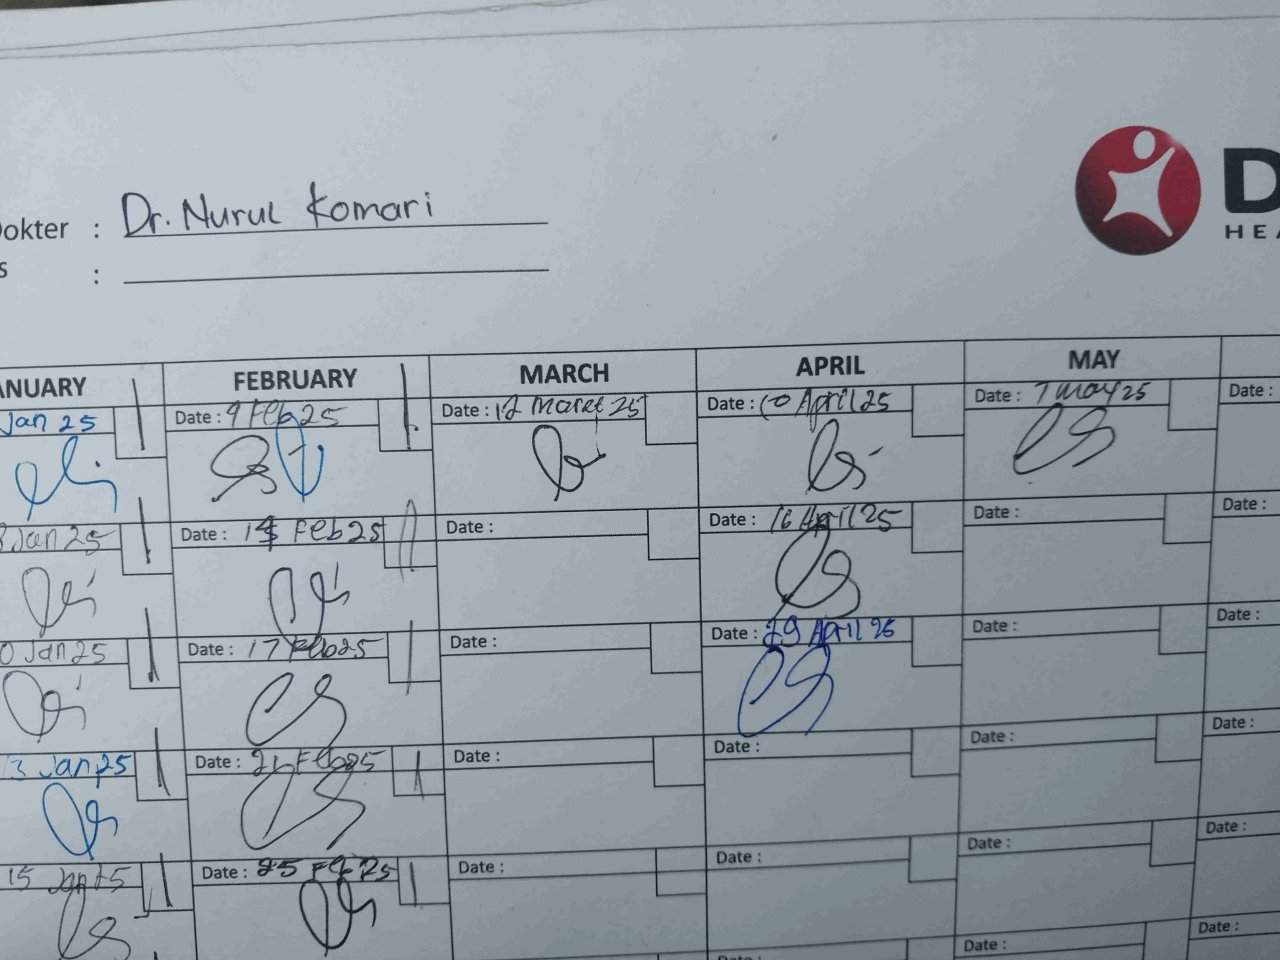 Dokter : Dr. Nurul Komari
s :
D
HEA
ANUARY FEBRUARY MARCH APRIL MAY
Jan 25 Date : 9 Feb 25 Date : 12 Maret 25 Date : 10 April 25 Date : 7 May 25 Date :
Jan 25 Date : 14 Feb 25 Date : Date : 16 April 25 Date : Date :
0 Jan 25 Date : 17 Feb 25 Date : Date : 29 April 25 Date : Date :
3 Jan 25 Date : 21 Feb 25 Date : Date : Date : Date :
15 Jan 25 Date : 25 Feb 25 Date : Date : Date : Date :
Date : Date :